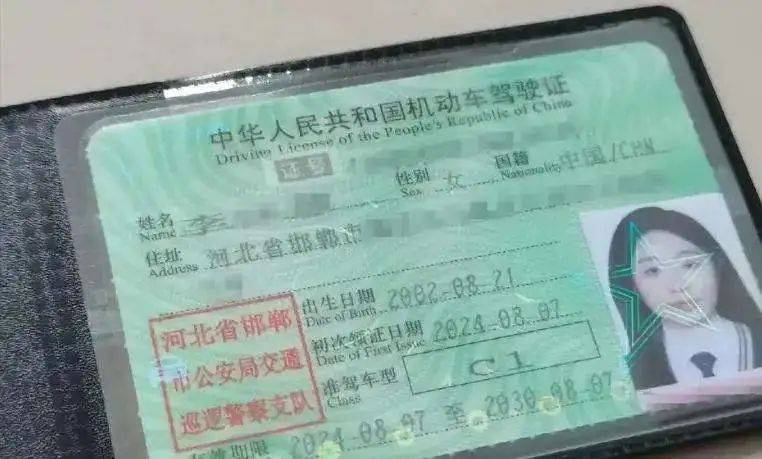 中华人民共和国机动车驾驶证
Driving License of the People's Republic of China
证号
性别 女 国籍 中国/CHN
Sex Nationality
姓名 李
Name
住址 河北省邯郸市
Address
出生日期 2002-08-21
Date of Birth
初次领证日期 2024-08-07
Date of First Issue
准驾车型 C1
Class
河北省邯郸
市公安局交通
巡逻警察支队
有效期限 2024-08-07 至 2030-08-07